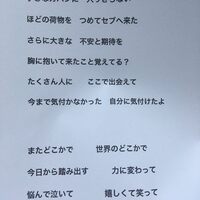 ほどの荷物を　つめてセブへ来た
さらに大きな　不安と期待を
胸に抱いて来たこと覚えてる？
たくさん人に　ここで出会えて
今まで気付かなかった　自分に気付けたよ
またどこかで　世界のどこかで
今日から踏み出す　力に変わって
悩んで泣いて　嬉しくて笑って